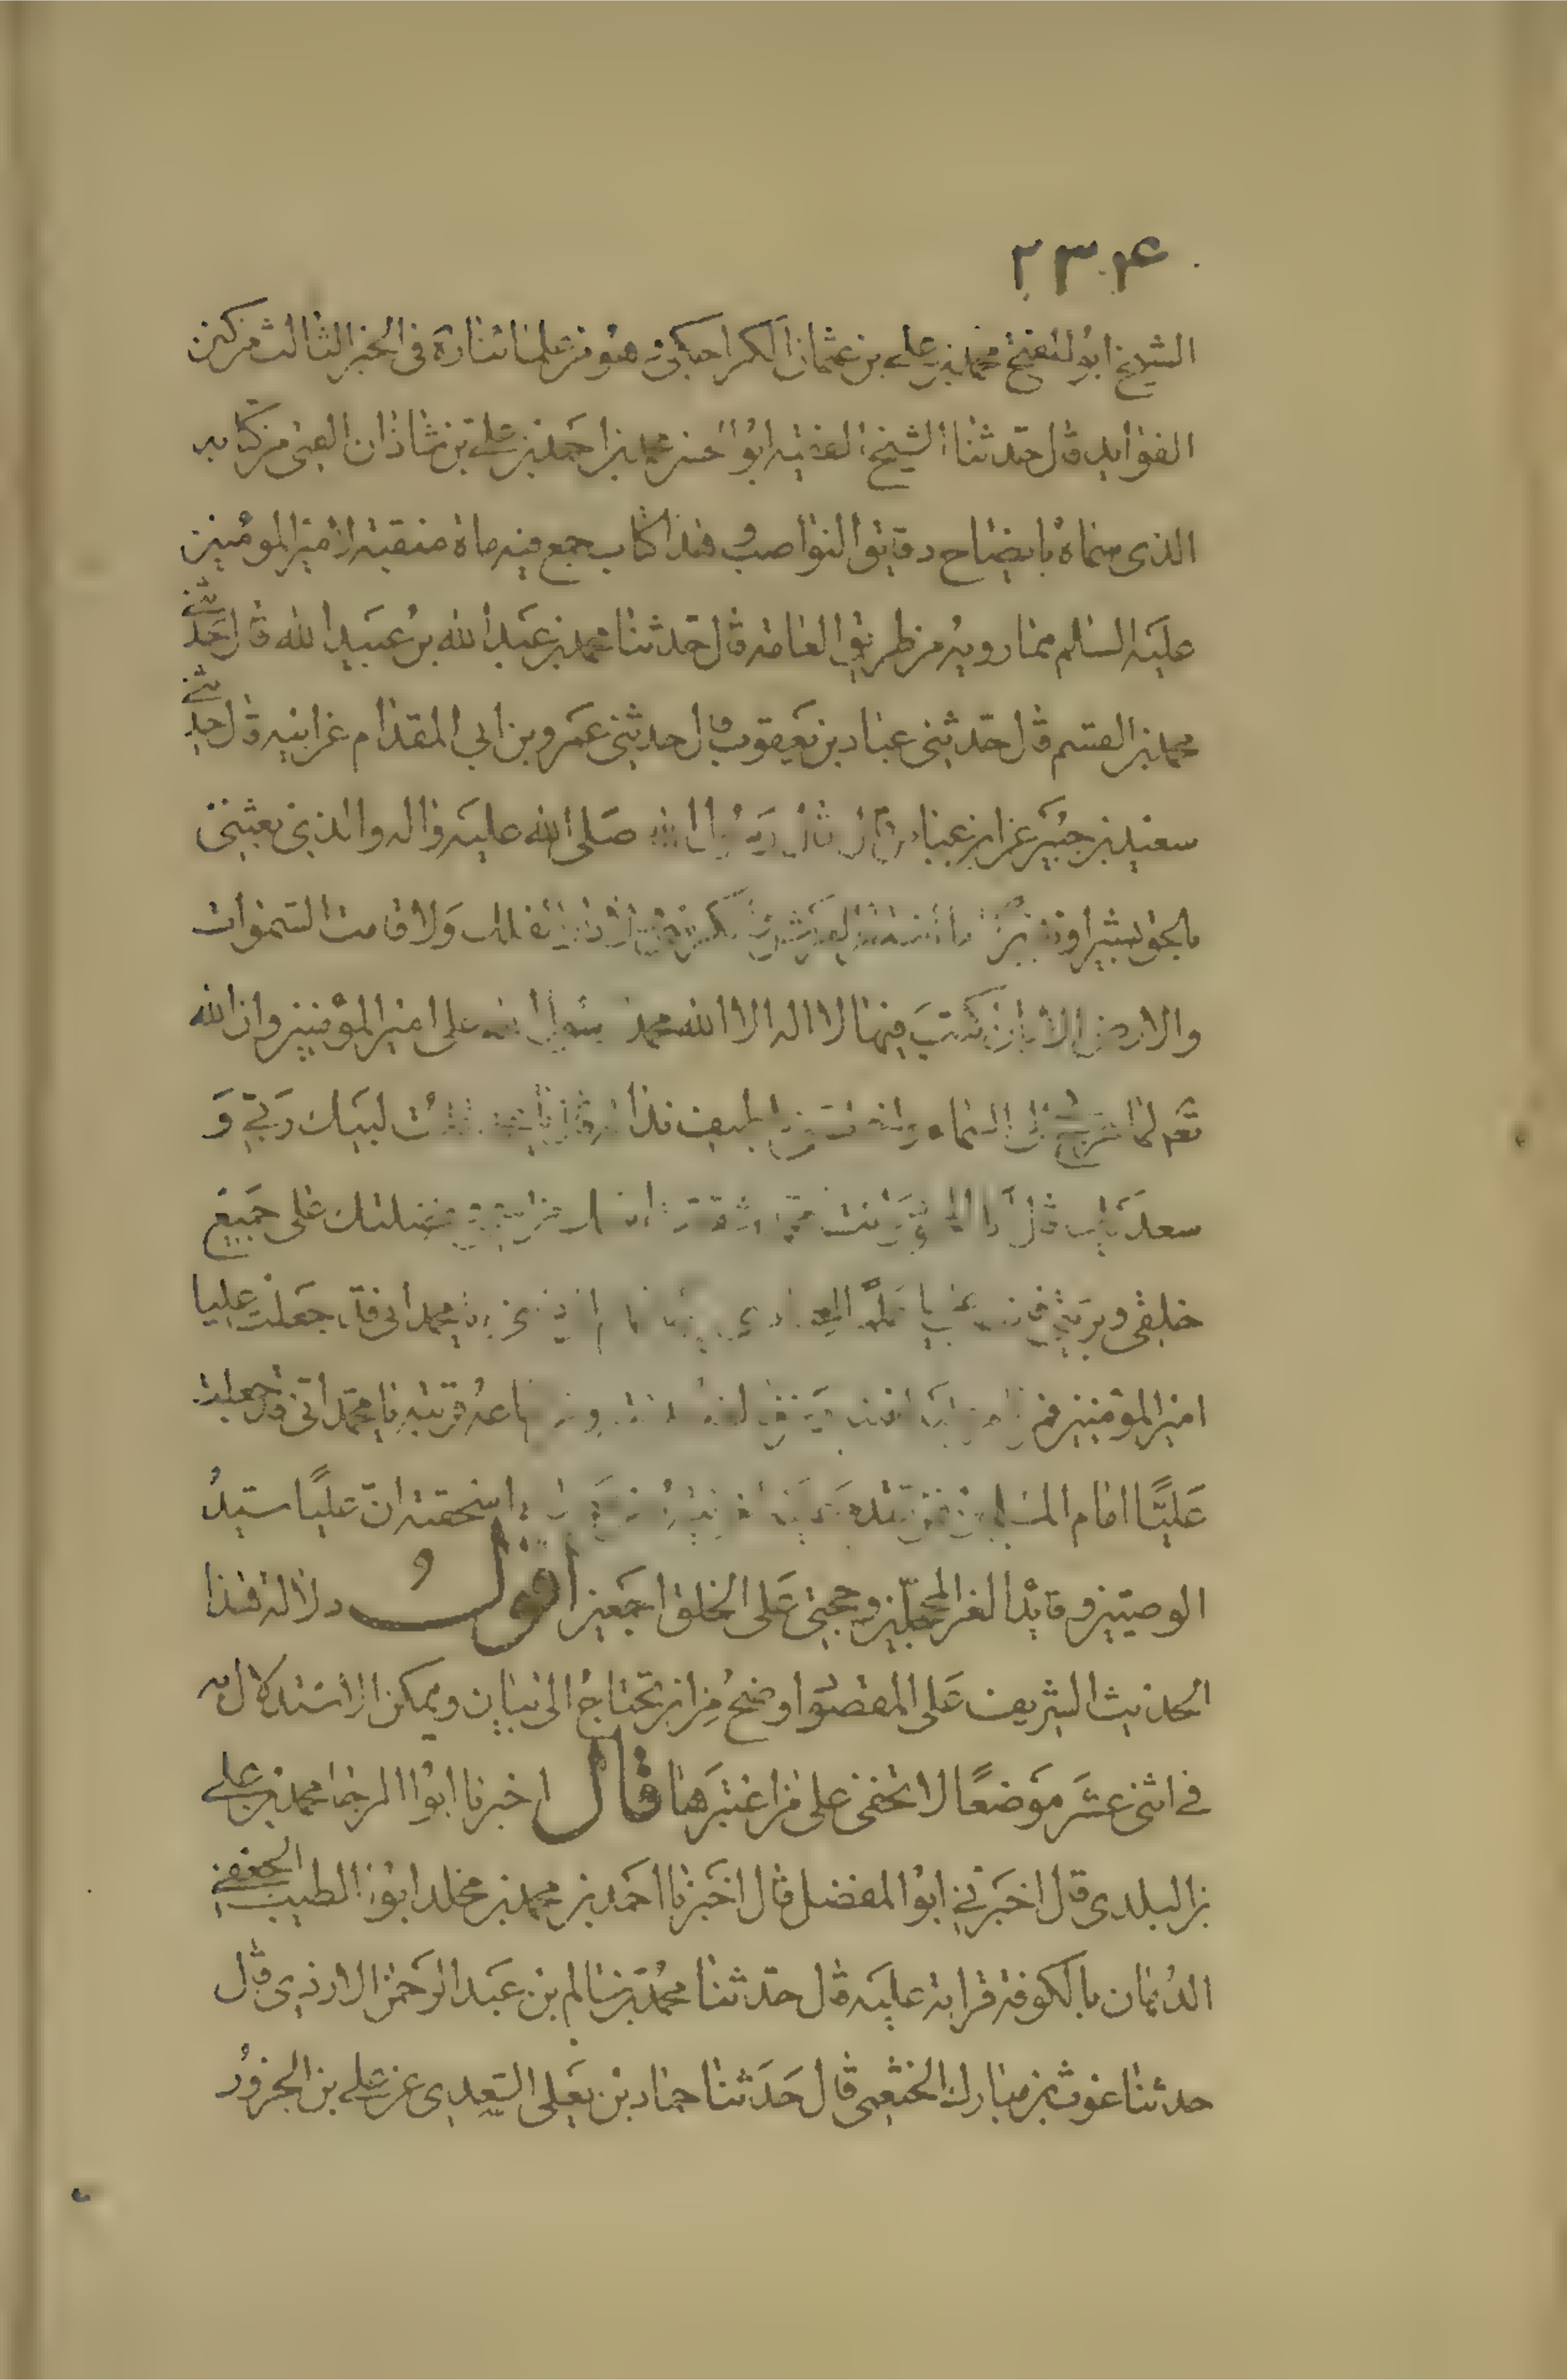 ٢٣٠٤
الشيخ ابو الفتح محمد بن علي بن عثمان الكراجكي وهو من علمائنا ره في الجزء الثالث من كنز
الفوايد قال حدثنا الشيخ الفقيه ابو الحسن محمد بن احمد بن علي بن شاذان القمي من كتابه
الذي سماه بايضاح دقايق النواصب وهذا كتاب جمع فيه ماة منقبة لامير المومنين
عليه السلام مما رويه من طريق العامة قال حدثنا محمد بن عبد الله بن عبيد الله قال حدثني
محمد بن القسم قال حدثني عباد بن يعقوب قال حدثني عمرو بن ابي المقدام عن ابيه قال حدثني
سعيد بن جبير عن ابن عباس قال قال رسول الله صلى الله عليه واله والذي بعثني
بالحق بشيرا ونذيرا ما استقر الكرسي ولا الفلك ولا قامت السموات
والارض الا بان كتب فيها لا اله الا الله محمد رسول الله علي امير المؤمنين وان الله
تعا لما عرج بي الى السماء واختصني بلطيف نداه قال يا محمد قلت لبيك ربي و
سعديك قال انا المحمود وانت محمد شققت اسمك من اسمي وفضلتك على جميع
خلقي وبريتي فانصب اخاك عليا علما لعبادي يهديهم الى ديني يا محمد اني قد جعلت عليا
امير المؤمنين فمن تامر عليه لعنته ومن اطاعه قربته يا محمد اني قد جعلت
عليّا امام المسلمين فمن تقدم عليه اخزيته ومن عصاه اسحقته ان عليا سيد
الوصيين وقايد الغر المحجلين وحجتي على الخلق اجمعين اقول دلالة هذا
الحديث الشريف على المقصود اوضح من ان تحتاج الى بيان ويمكن الاستدلال به
في اثنى عشر موضعًا لا تخفى على من اعتبرها قال اخبرنا ابوا المرجا محمد بن علي
بن البلدي قال اخبرني ابوا المفضل قال اخبرنا احمد بن محمد بن مخلد ابوا الطيب الجعفي
الدهان بالكوفة قراية عليه قال حدثنا محمد بن سالم بن عبد الرحمن الازدي قال
حدثنا غوث بن مبارك الخثعمي قال حدثنا حماد بن يعلى السعدي عن علي بن الحزور